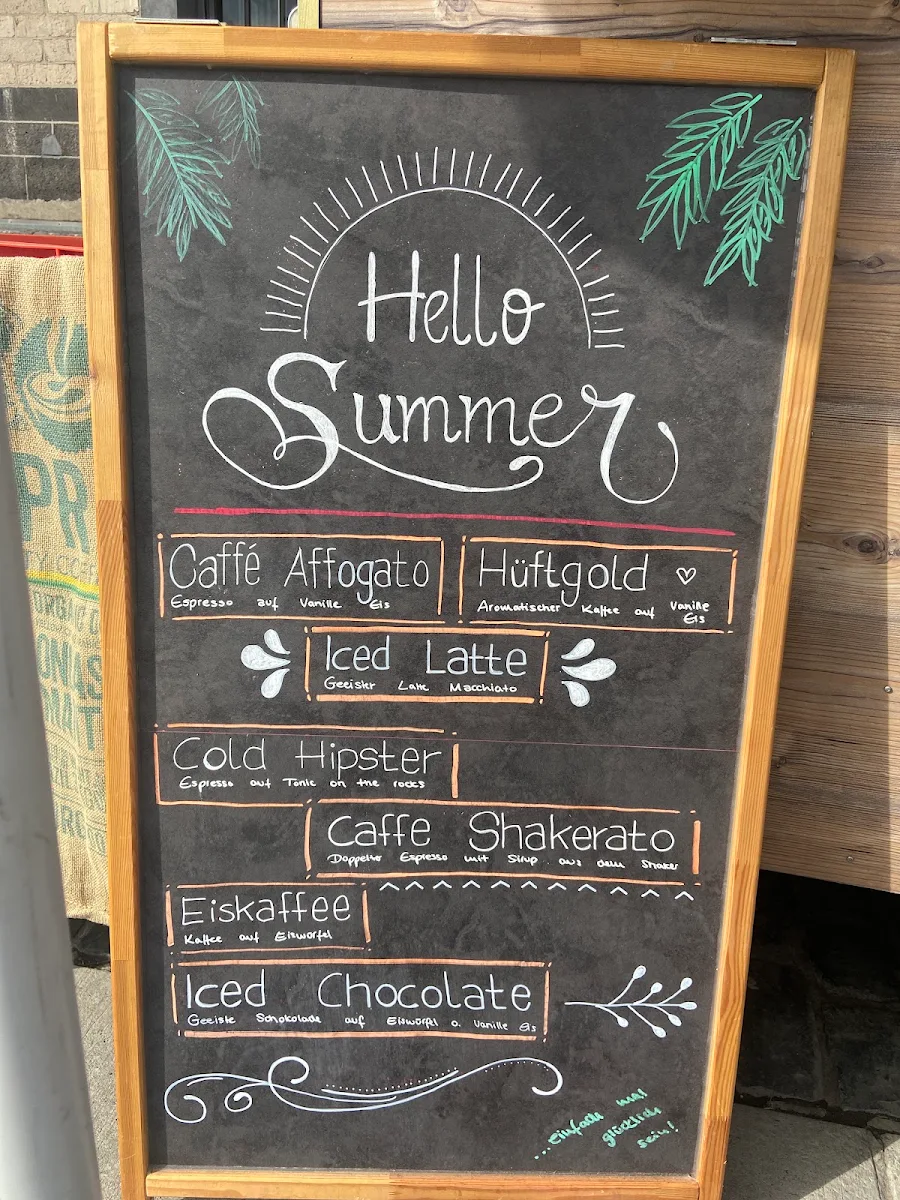 Hello
Summer
Caffé Affogato
Espresso auf Vanille Eis
Hüftgold ♡
Aromatischer Kaffee auf Vanille
Eis
Iced Latte
Geeister Latte Macchiato
Cold Hipster
Espresso auf Tonic on the rocks
Caffe Shakerato
Doppelter Espresso mit Sirup aus dem Shaker
Eiskaffee
Kaffee auf Eiswürfel
Iced Chocolate
Geeiste Schokolade auf Eiswürfel o. Vanille Eis
...einfach mal
glücklich
sein!
PR